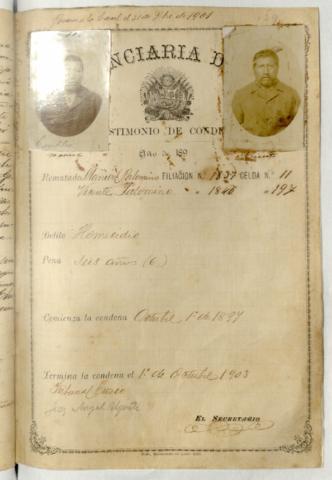 de 1901
NCIARIA D
STIMONIO DE CONDE
Año de 189
Rematado Manuel Palomino FILIACION N. 1837 CELDA N. 11
Vicente Palomino " 1838 " 197
Delito Homicidio
Pena seis años (6)
Comienza la condena Octubre 1º de 1897
Termina la condena el 1º de Octubre 1903
Tribunal Cuzco
Juez Angel Ugarte
EL SECRETARIO